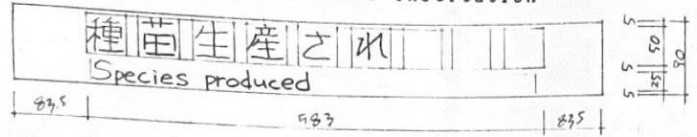 種苗生産され
Species produced
83.5 583 835
5 50 5 25 5
90